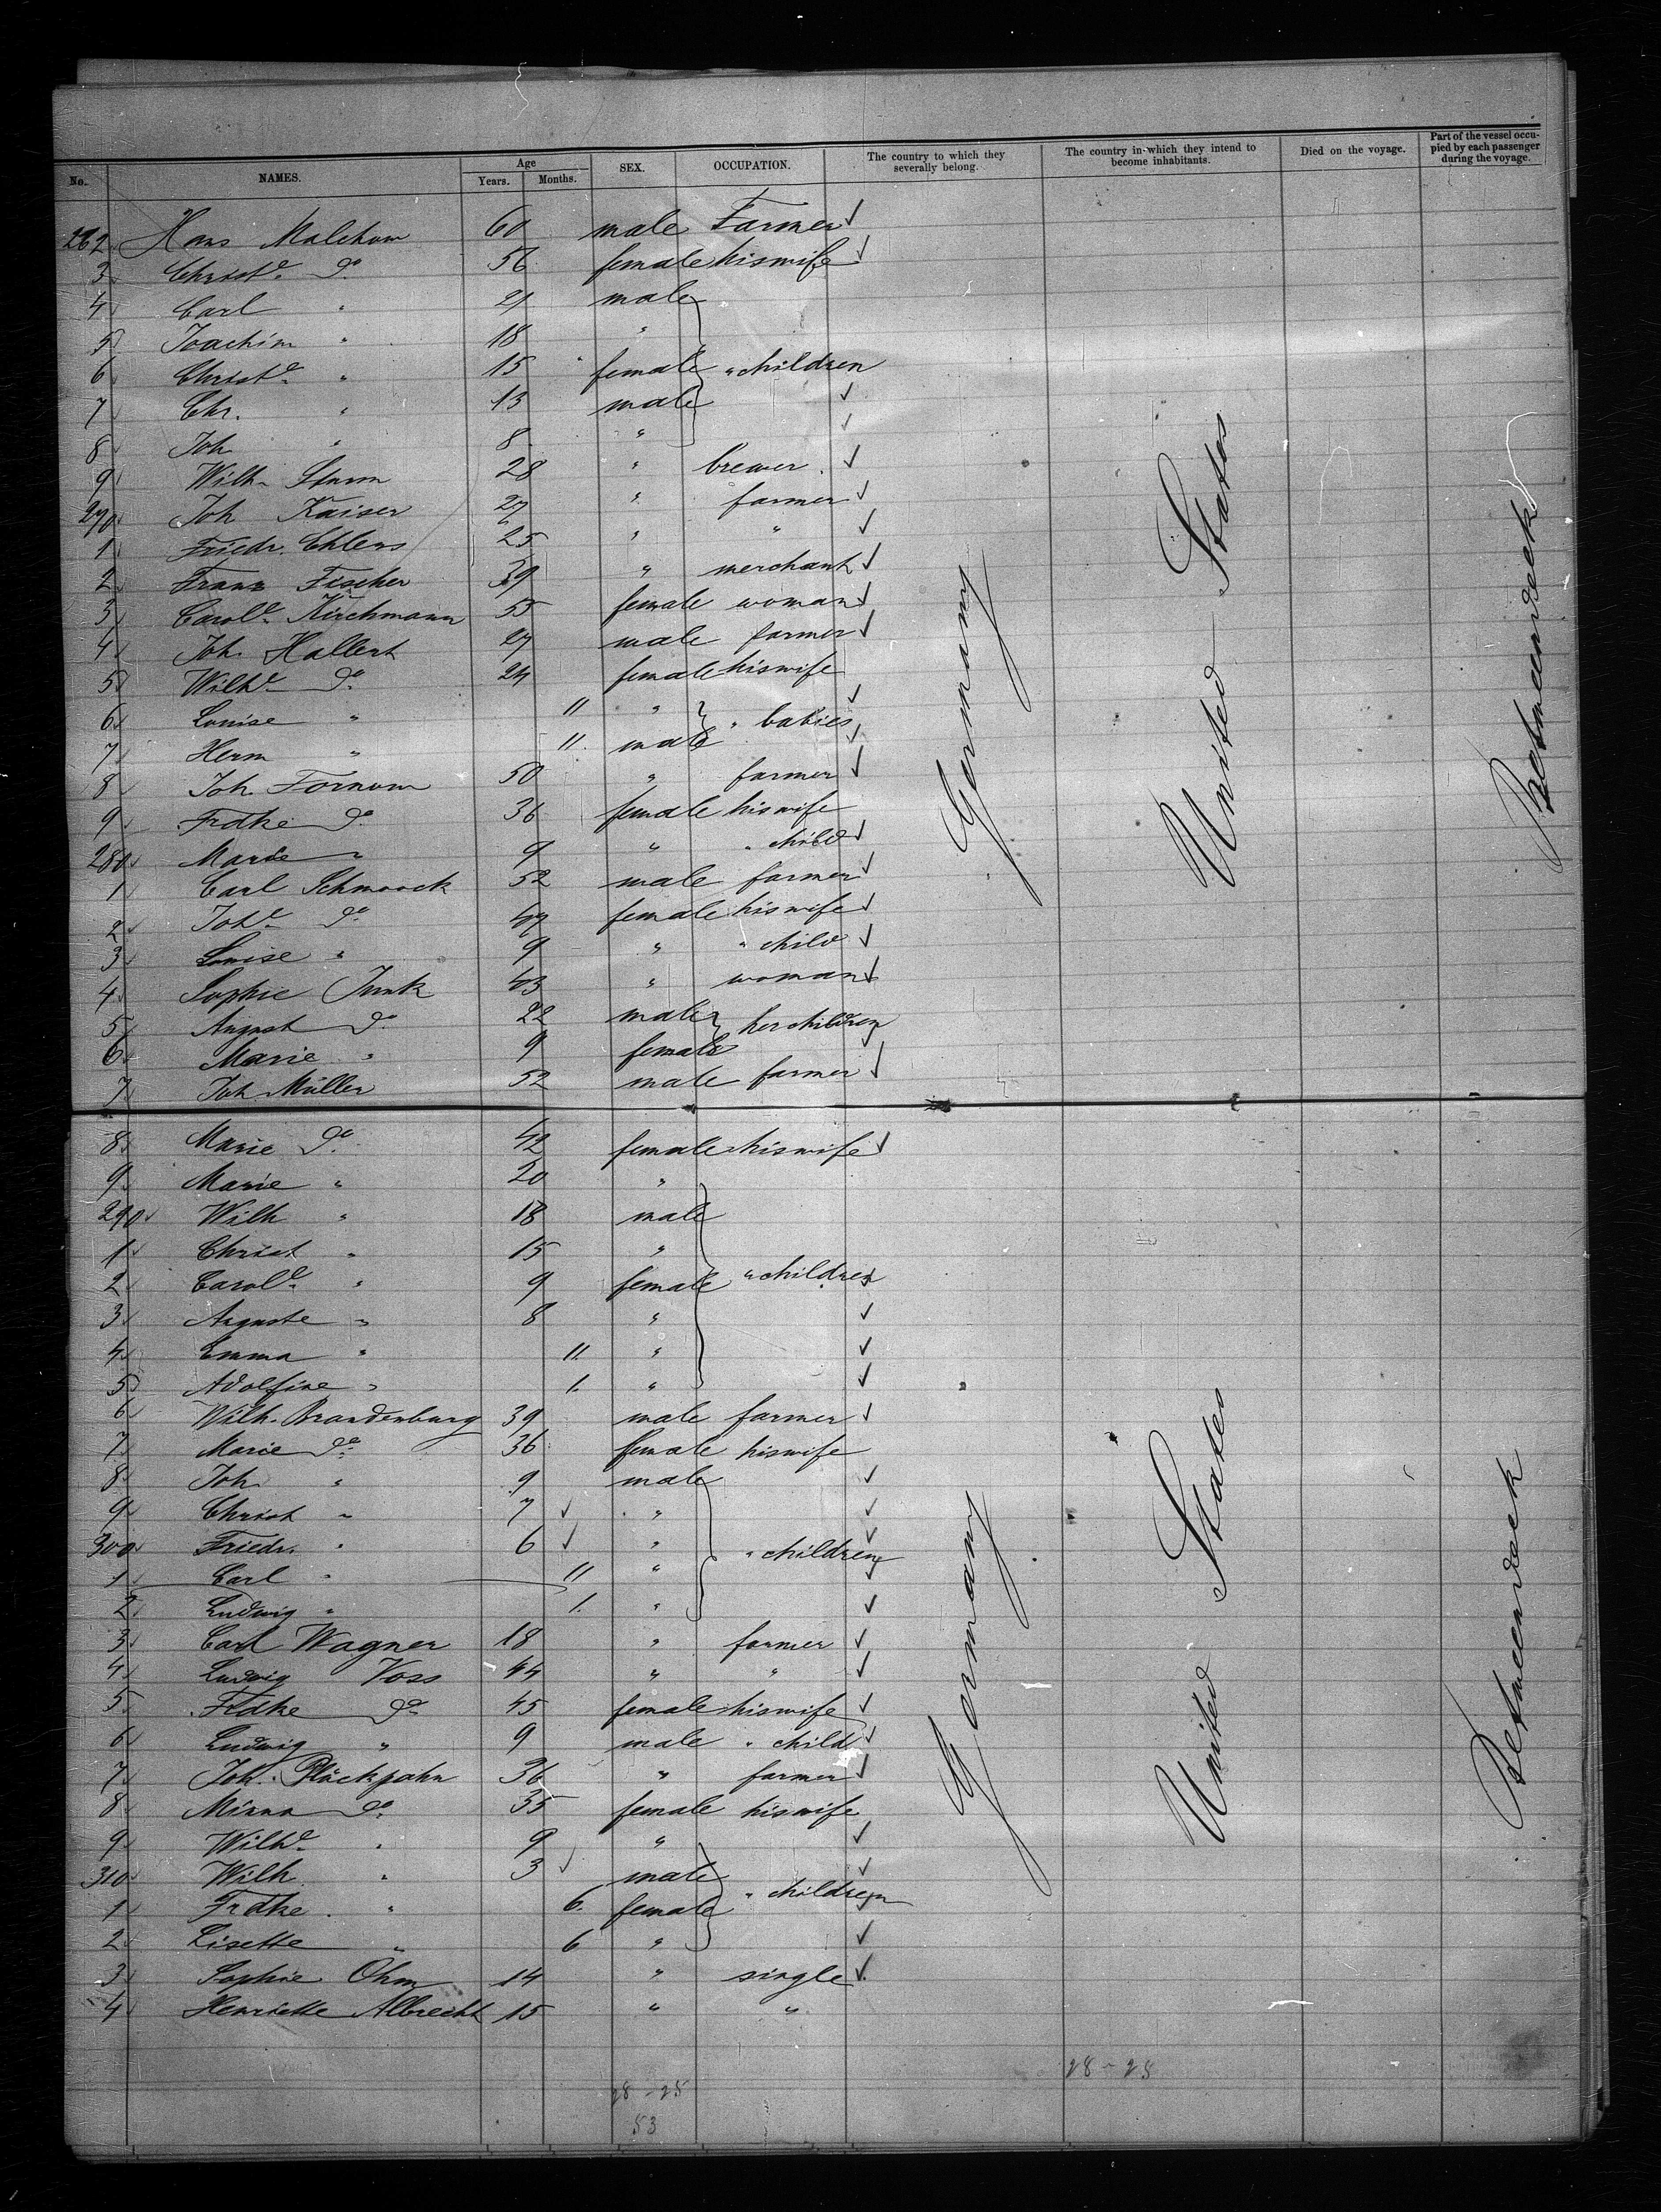 No. NAMES. Age Years. Months. SEX. OCCUPATION. The country to which they severally belong. The country in which they intend to become inhabitants. Died on the voyage. Part of the vessel occupied by each passenger during the voyage.
262 Hans Malchow 60 male Farmer
3 Christe do 56 female his wife
4 Carl " 21 male
5 Joachim " 18 "
6 Christe " 15 female " children
7 Chr. " 13 male
8 Joh " 8 "
9 Wilh. Sturm 28 " brewer
270 Joh Kaiser 27 " farmer
1 Friedr. Ehlers 25 " "
2 Franz Fischer 39 " merchant
3 Carole Kirchmann 55 female woman
4 Joh. Hallert 27 male farmer
5 Wilhe do 24 female his wife
6 Louise " 11 " " babies
7 Herm " 11. male
8 Joh. Fornom 50 " farmer
9 Frdke do 36 female his wife
280 Marie " 9 " " child
1 Carl Schmoock 52 male farmer
2 Johe do 47 female his wife
3 Louise " 9 " " child
4 Sophie Junk 43 " woman
5 August do 22 male her children
6 Marie " 9 female
7 Joh. Müller 52 male farmer
8 Marie do 42 female his wife
9 Marie " 20 "
290 Wilh " 18 male
1 Christ " 15 "
2 Carole " 9 female " children
3 Auguste " 8 "
4 Emma " 11. "
5 Adolfine " 1. "
6 Wilh. Brandenburg 39 male farmer
7 Marie do 36 female his wife
8 Joh. " 9 male
9 Christ " 7 "
300 Friedr. " 6 " " children
1 Carl " 11 "
2 Ludwig " 1. "
3 Carl Wagner 18 " farmer
4 Ludwig Voss 44 " "
5 Frdke do 45 female his wife
6 Ludwig " 9 male " child
7 Joh. Plückhahn 36 " farmer
8 Minna do 35 female his wife
9 Wilhe " 9 "
310 Wilh " 3 male " children
1 Frdke " 6. female
2 Lisette " 6 "
3 Sophie Ohm 14 " single
4 Henriette Albrecht 15 " "
Germany United States Betweendeck
Germany United States Betweendeck
28-25 28-25
53